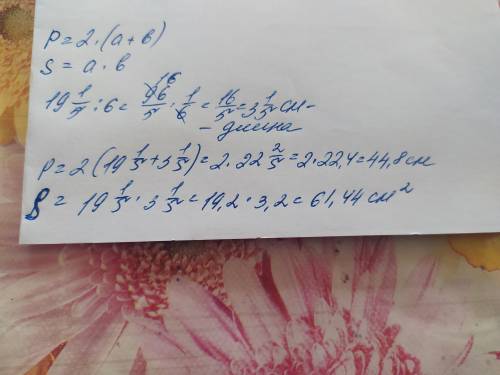 P = 2·(a+b)
S = a·b
19 1/5 : 6 = 96/5 · 1/6 = 16/5 = 3 1/5 см -
- длина
P = 2(19 1/5 + 3 1/5) = 2·22 2/5 = 2·22,4 = 44,8 см
S = 19 1/5 · 3 1/5 = 19,2·3,2 = 61,44 см²